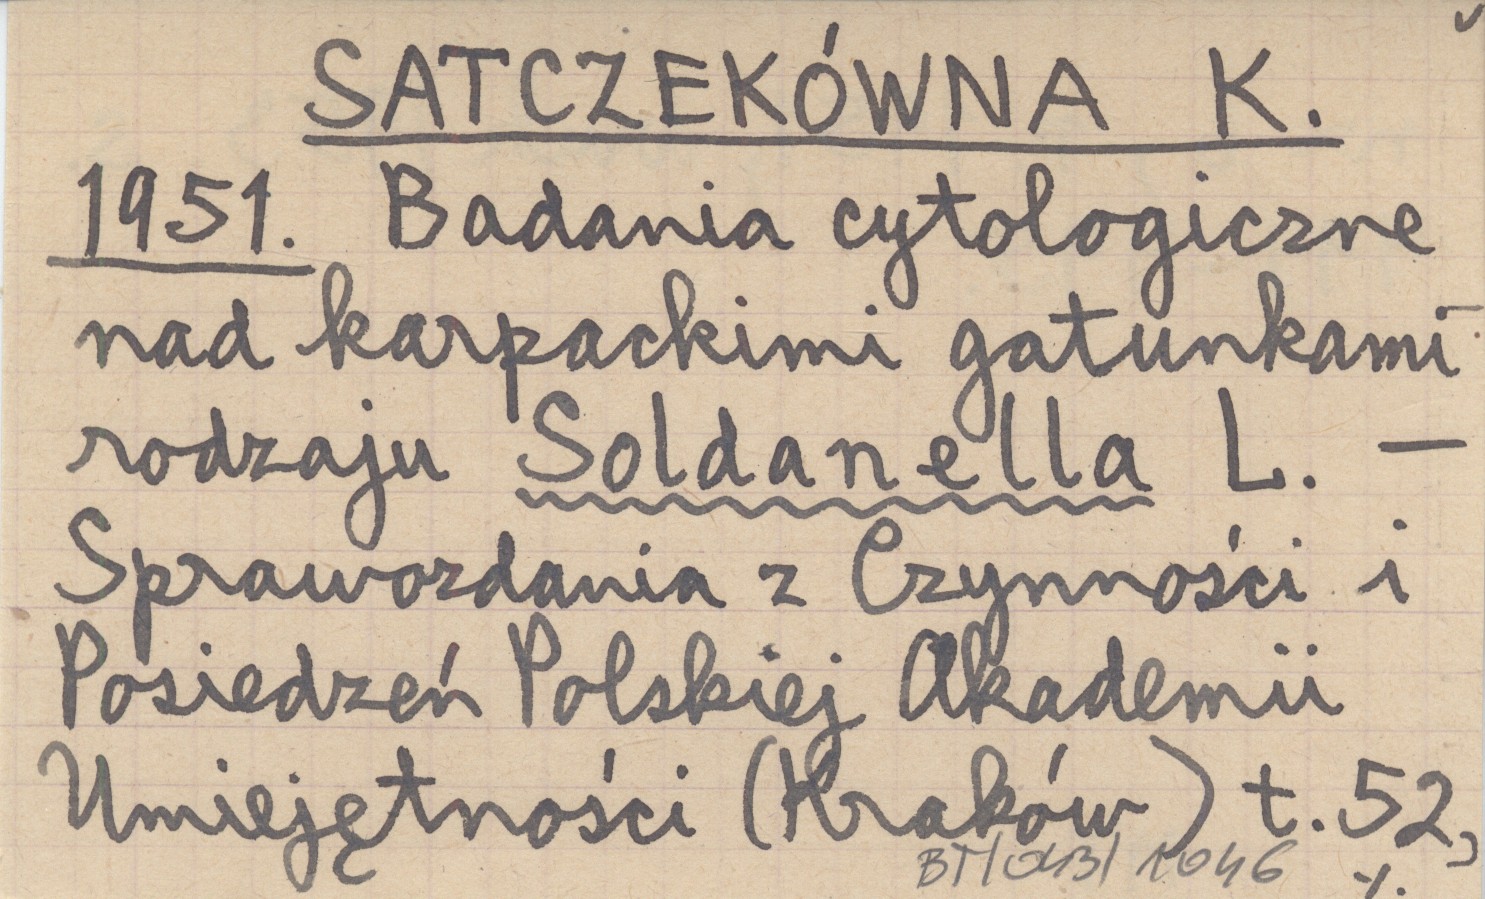 SATCZEKÓWNA K.
1951. Badania cytologiczne
nad karpackimi gatunkami
rodzaju Soldanella L. —
Sprawozdania z Czynności i
Posiedzeń Polskiej Akademii
Umiejętności (Kraków) t. 52,
BT/043/1046